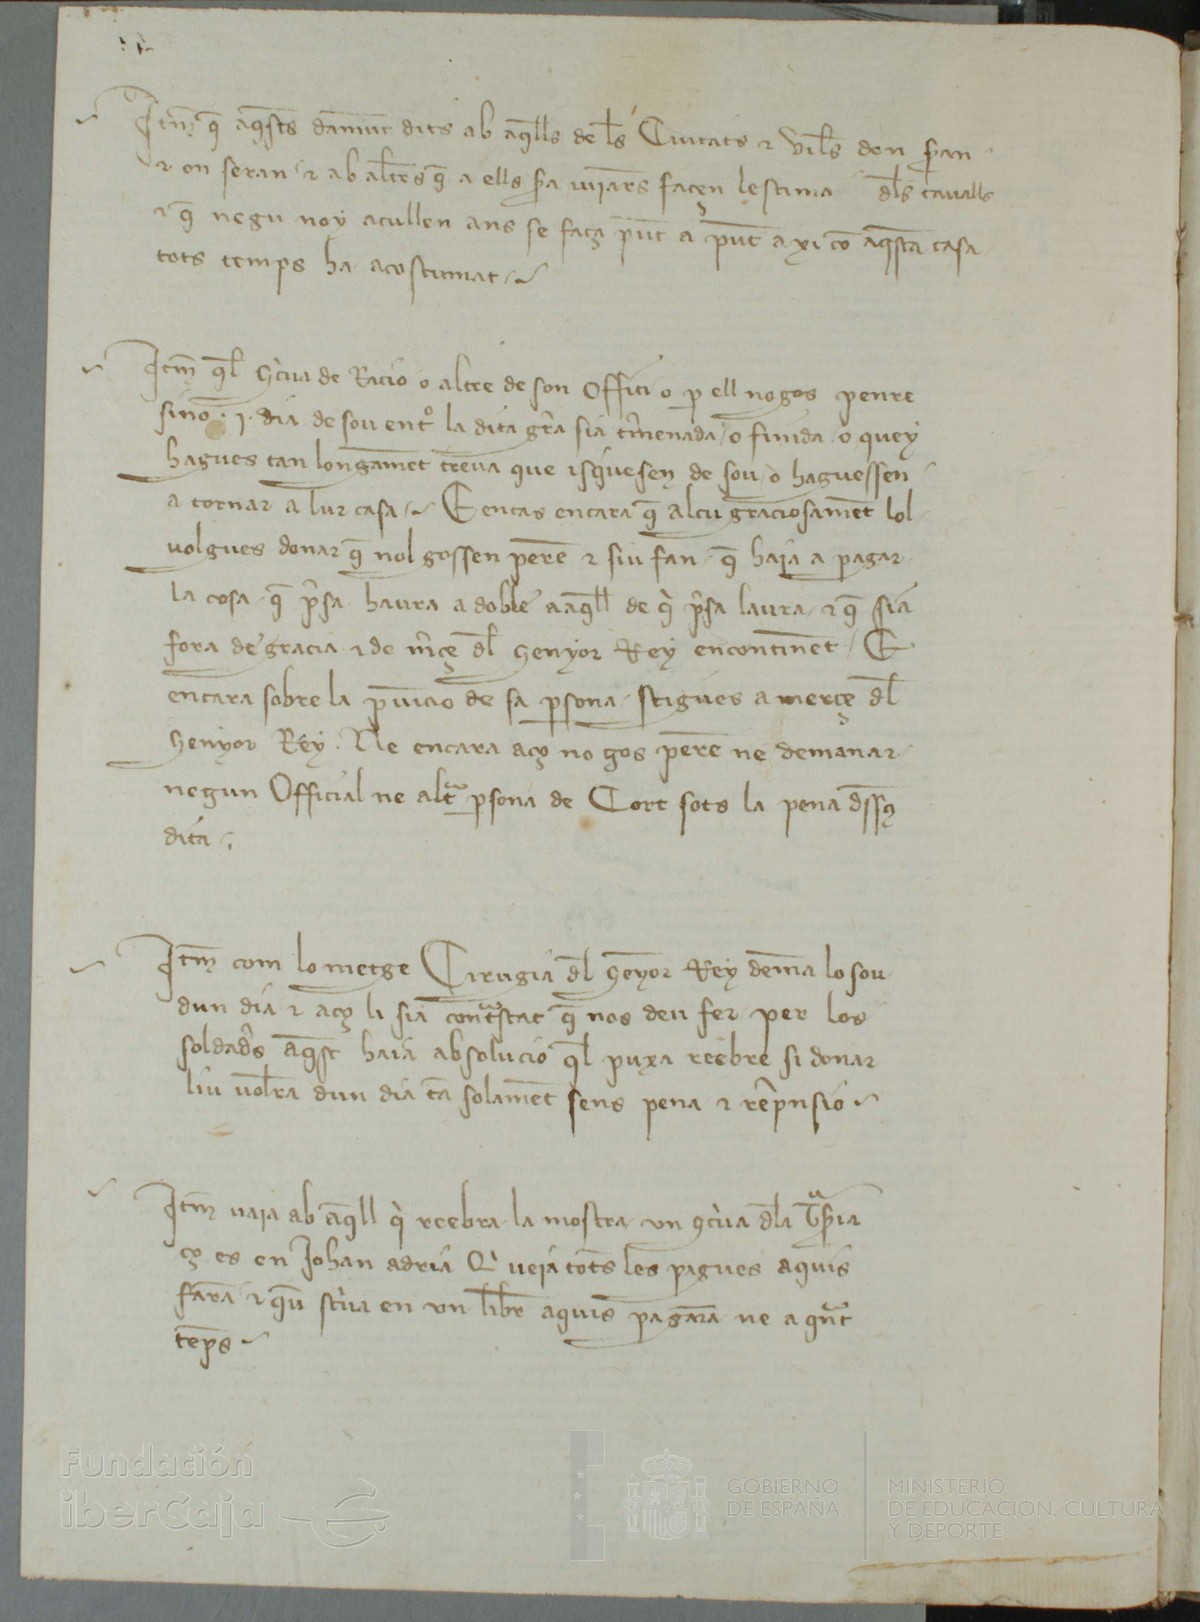 Itm̄ q̄ aq̄sts dam̄ut dits ab aq̄lls de les Ciutats ⁊ viles don seran
⁊ on seran ⁊ ab altres q̄ a ells sera viiares facen lestima dls cavalls
⁊ q̄ negu noy acullen ans se faça pūt a pūt axi co aq̄sta casa
tots temps ha acostumat
Itm̄ ql sc̀ua de Racio o altre de son Offici o p ell no gos penre
sino .j. dia de sou ent̊ la dita gr̄a sia tm̄enada o finida o quey
hagues tan longamēt treua que isq̀uesen de sou o haguessen
a tornar a lur casa E encas encara q̄ alcu graciosamēt lol
volgues donar q̄ nol gossen penre ⁊ siu fan q̄ haia a pagar
la cosa q̄ pr̄sa haura a doble a aq̄ll de q̀ pr̄sa laura ⁊ q̄ sia
fora de gracia ⁊ de m̄ce dl senyor Rey encontinēt E
encara sobre la pūicio de sa psona stigues a merce dl
senyor Rey. Ne encara aço no gos penre ne demanar
negun Official ne altra psona de Cort sots la pena dss̄
dita
Itm̄ com lo metge Cirugia dl senyor Rey demā lo sou
dun dia ⁊ aço li sia contrastat q̄ nos deu fer per los
soldad̄s aq̄st haia absolucio ql puxa reebre si donar
liu volrra dun dia tā solamēt sens pena ⁊ rep̄nsio
Itm̄ vaia ab aq̄ll q̀ reebra la mostra vn sc̀ua dla Tsrıa
ço es en Johan adria Q̀ veia tots les pagues aquis
faran ⁊ qu scùa en vn libre aquis pagara ne a qnt
temps
Fundación
iberCaja
GOBIERNO
DE ESPAÑA
MINISTERIO
DE EDUCACIÓN, CULTURA
Y DEPORTE